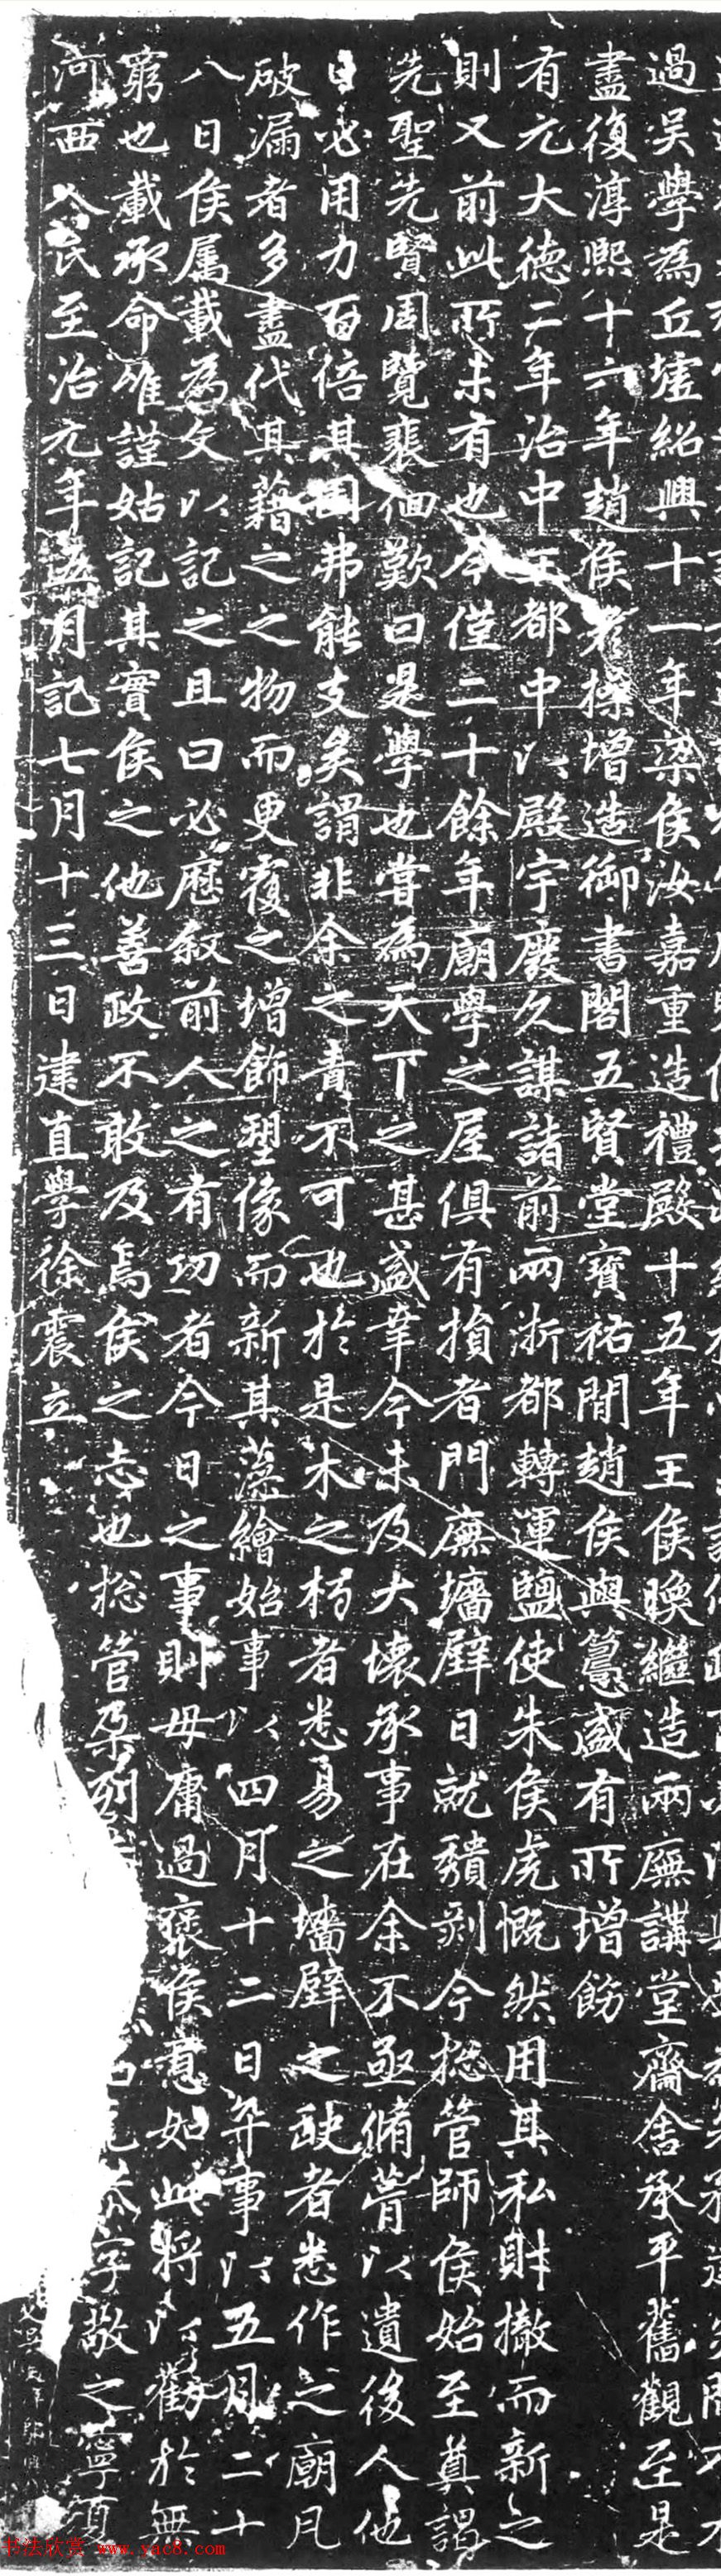 過吴學為丘墟紹興十一年梁侯汝嘉重造禮殿十五年王侯㬇繼造兩廡講堂齋舍承平舊觀至是
盡復淳熙十六年趙侯彦操增造御書閣五賢堂寶祐間趙侯與𥲅盛有所增飭
有元大德二年治中王都中以殿宇廢久謀諸前兩浙都轉運鹽使朱侯虎慨然用其私財撤而新之
則又前此所未有也今僅二十餘年廟學之屋俱有損者門廡墻壁日就隤剥今揔管師侯始至奠謁
先聖先賢周覽裴佪歎曰是學也嘗為天下之甚盛幸今未及大壞承事在余不亟脩葺以遺後人他
日必用力百倍其困弗能支矣謂非余之責不可也於是木之朽者悉易之墻壁之缺者悉作之廟凡
破漏者多盡代其藉之之物而更覆之增飾塑像而新其藻繪始事以四月十二日卒事以五月二十
八日侯属載為文以記之且曰必歷叙前人之有功者今日之事則毋庸過褒侯意如此将以勸於無
窮也載承命唯謹姑記其實侯之他善政不敢及焉侯之志也揔管朶列 字敬之寧夏
河西人氏至治元年五月記七月十三日建直學徐震立
书法欣赏 www.yac8.com